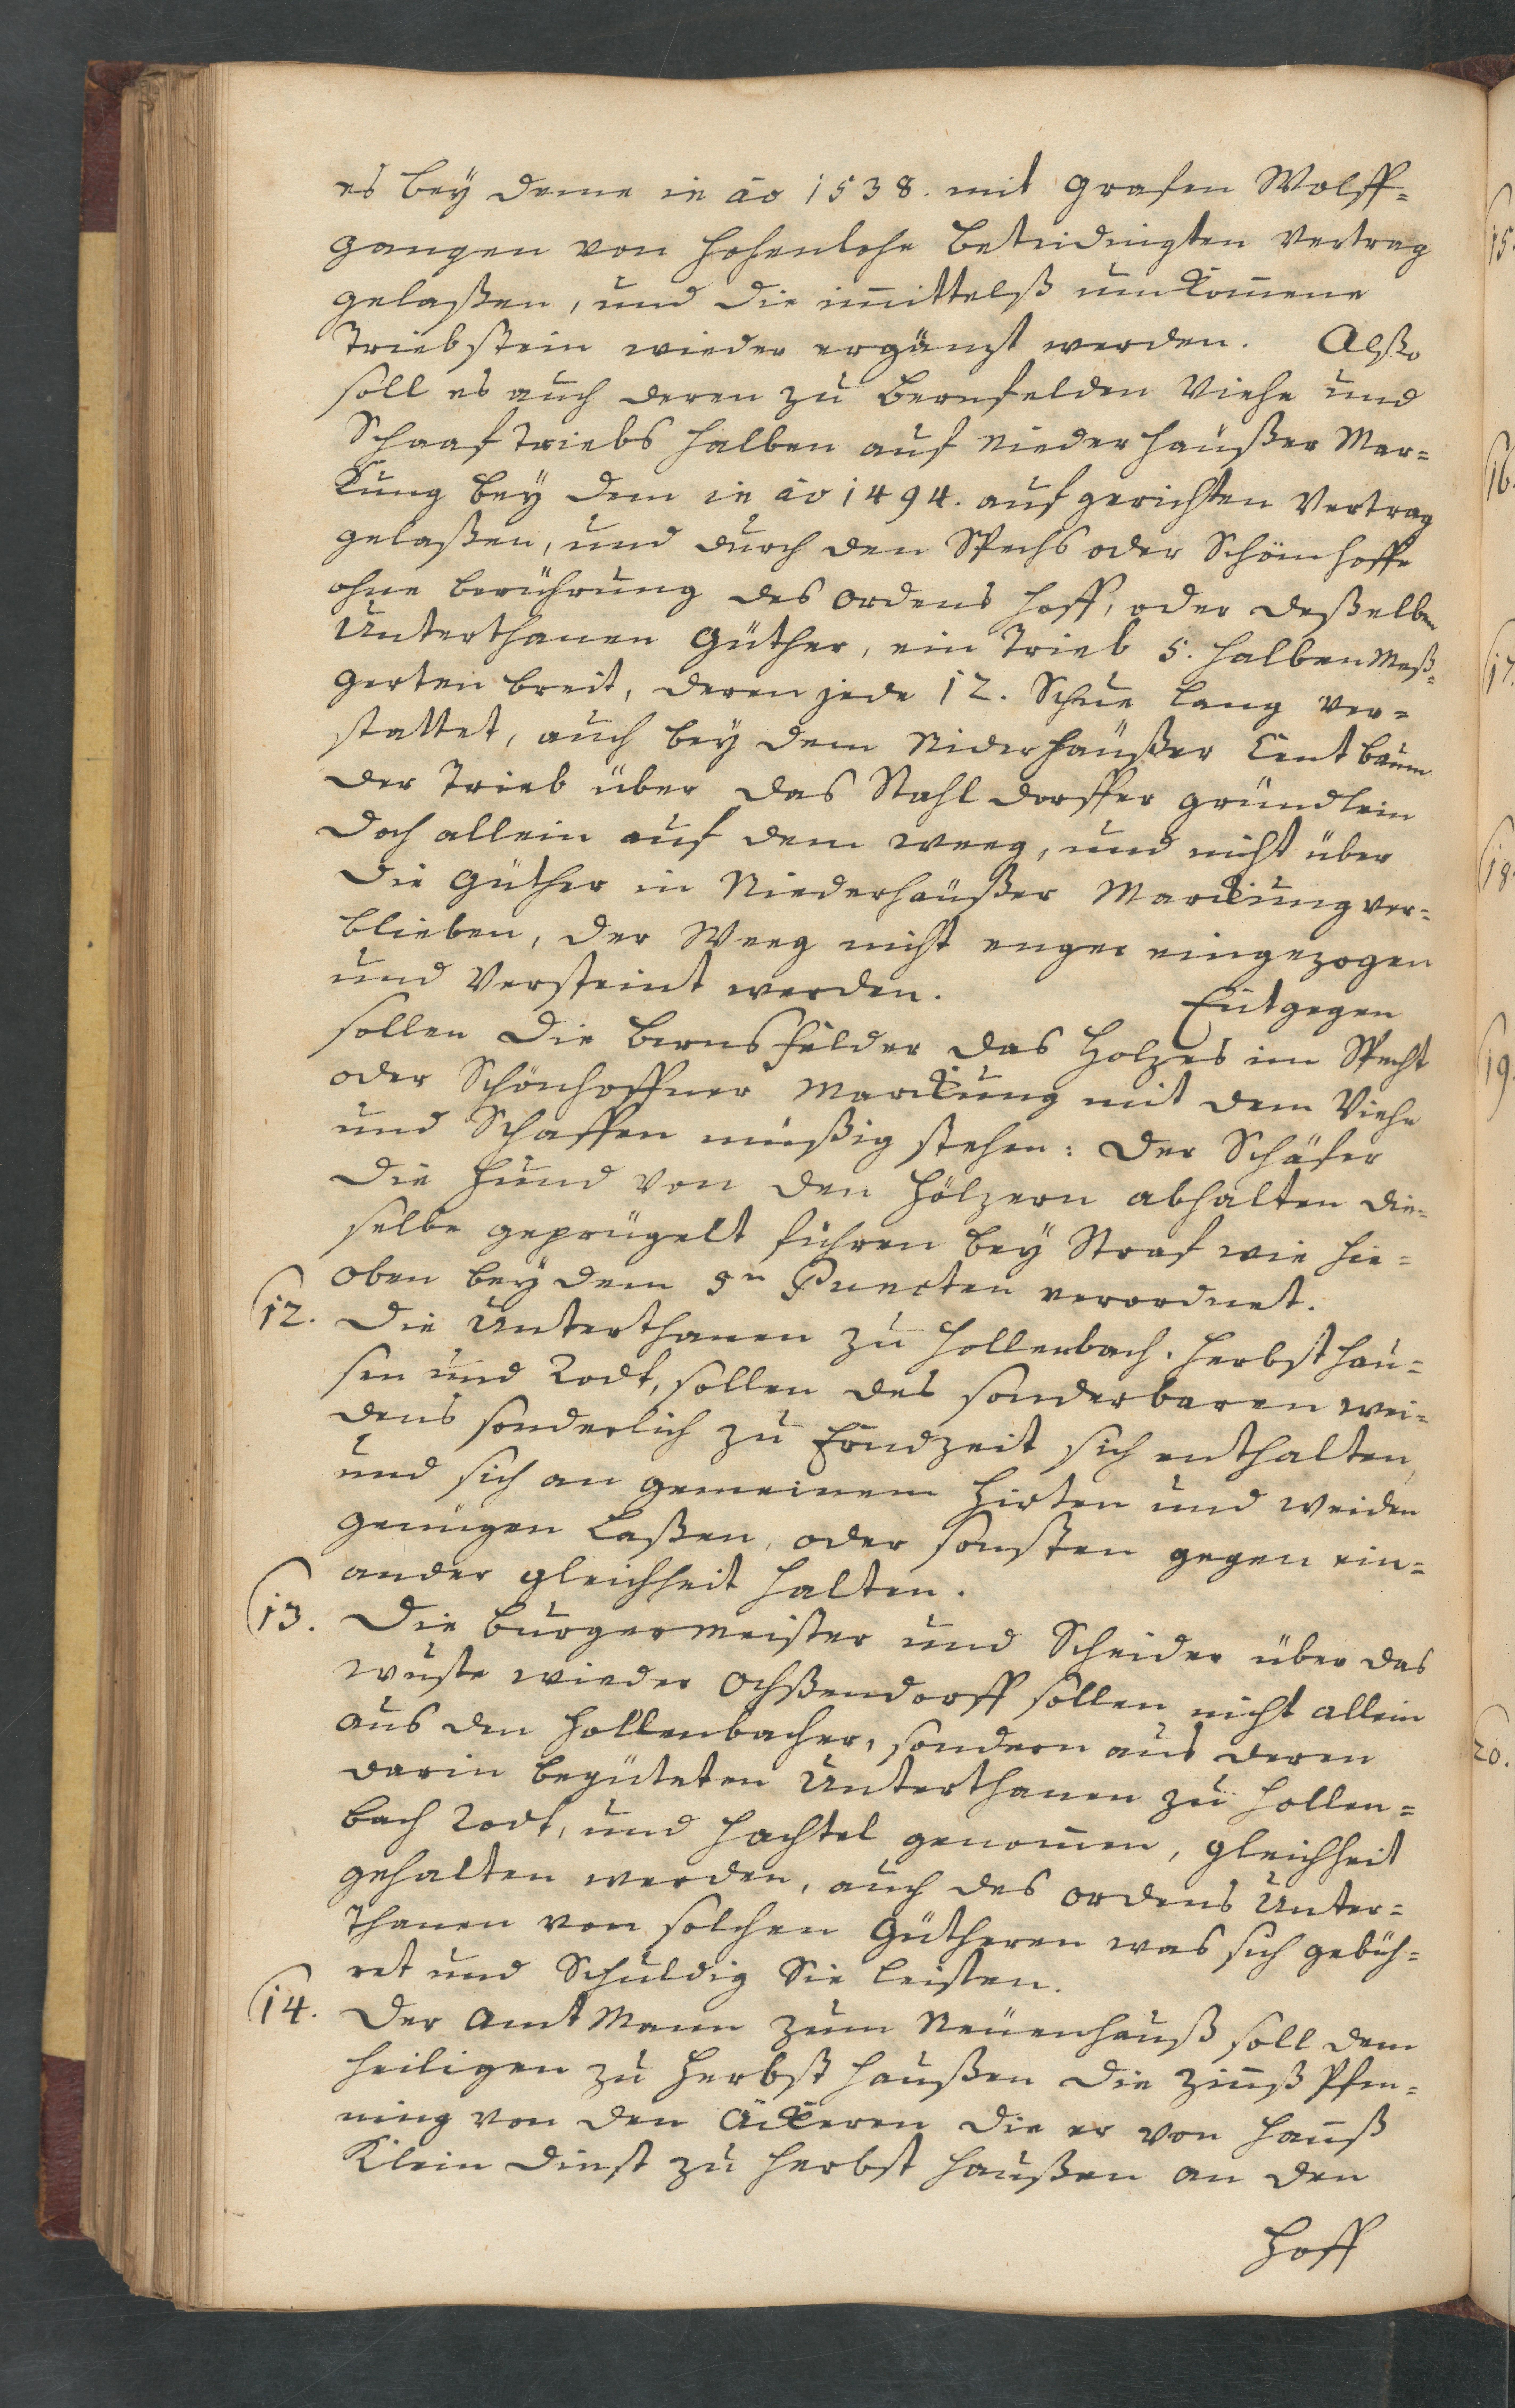 es beÿ deme in ao 1538. mit Grafen Wolff=
gangen von Hohenlohe betridingten Vertrag
gelaßen, und die im̄ittelß umkom̄ene
Triebstein wieder ergänzt werden. Alßo
soll es auch deren zu Bernsfelden Viehe und
Schaaf Triebs halben auf Niederhaußer Mar=
kung beÿ dem in ao 1494. aufgerichten Vertrag
gelaßen, und durch den Spechs oder Schönhoffe
ohne berührung des Ordens Hoff, oder deßelben
Unterthanen Güther, ein Trieb 5. halben Meß=
gerten breit, deren jede 12. Schue lang ver=
stattet, auch beÿ dem Niderhaußer Cent baum
der Trieb über das Stahldorffer gründlein
doch allein auf dem weeg, und nicht über
die Güther in Niederhaußer Marckung ver=
blieben, der Weeg nicht enger eingezogen
und Versteint werden. Entgegen
sollen die Bernsfelder das Holzes im Specht
oder Schönhoffner Marckung mit dem Viehe
und Schaffen müßig stehen: der Schäfer
die Hund von den Hölzern abhalten die=
selbe geprügelt führen beÿ Straf wie hie=
oben beÿ dem 5n Puncten verordnet.
12. Die Unterthanen zu Hollenbach. Herbsthau=
sen und Rodt, sollen des sonderbaren wei=
dens sonderlich zu Erndzeit sich enthalten,
und sich an gemeinem Hirten und weiden
genügen laßen, oder sonsten gegen ein=
ander gleichheit halten.
13. Die Burgermeister und Scheider über das
wuste wieder Ochßendorff sollen nicht allein
aus den Hollenbacher, sondern aus deren
darin begüteten Unterthanen zu Hollen=
bach Rodt, und Hachtel genom̄en, gleichheit
gehalten werden, auch des Ordens Unter=
thanen von solchen Gütheren was sich gebüh=
ret und Schuldig Sie leisten.
14. Der Amt Mann zum Neüenhauß soll dem
heiligen zu Herbsthaußen die Zinnß Pfen=
ning von den Äckeren die er von Hannß
Klein dienst zu Herbsthaußen an den
Hoff
15.
16.
17.
18.
19.
20.